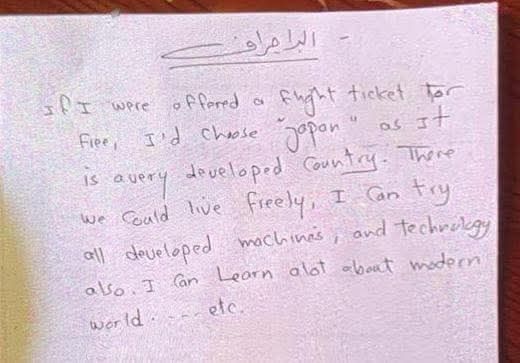 البراجراف -
If I were offered a flight ticket for
Free, I'd choose "japan" as It
is a very developed Country. There
we Could live freely, I Can try
all developed machines, and technology
also. I Can Learn alot about modern
world. ---- etc.